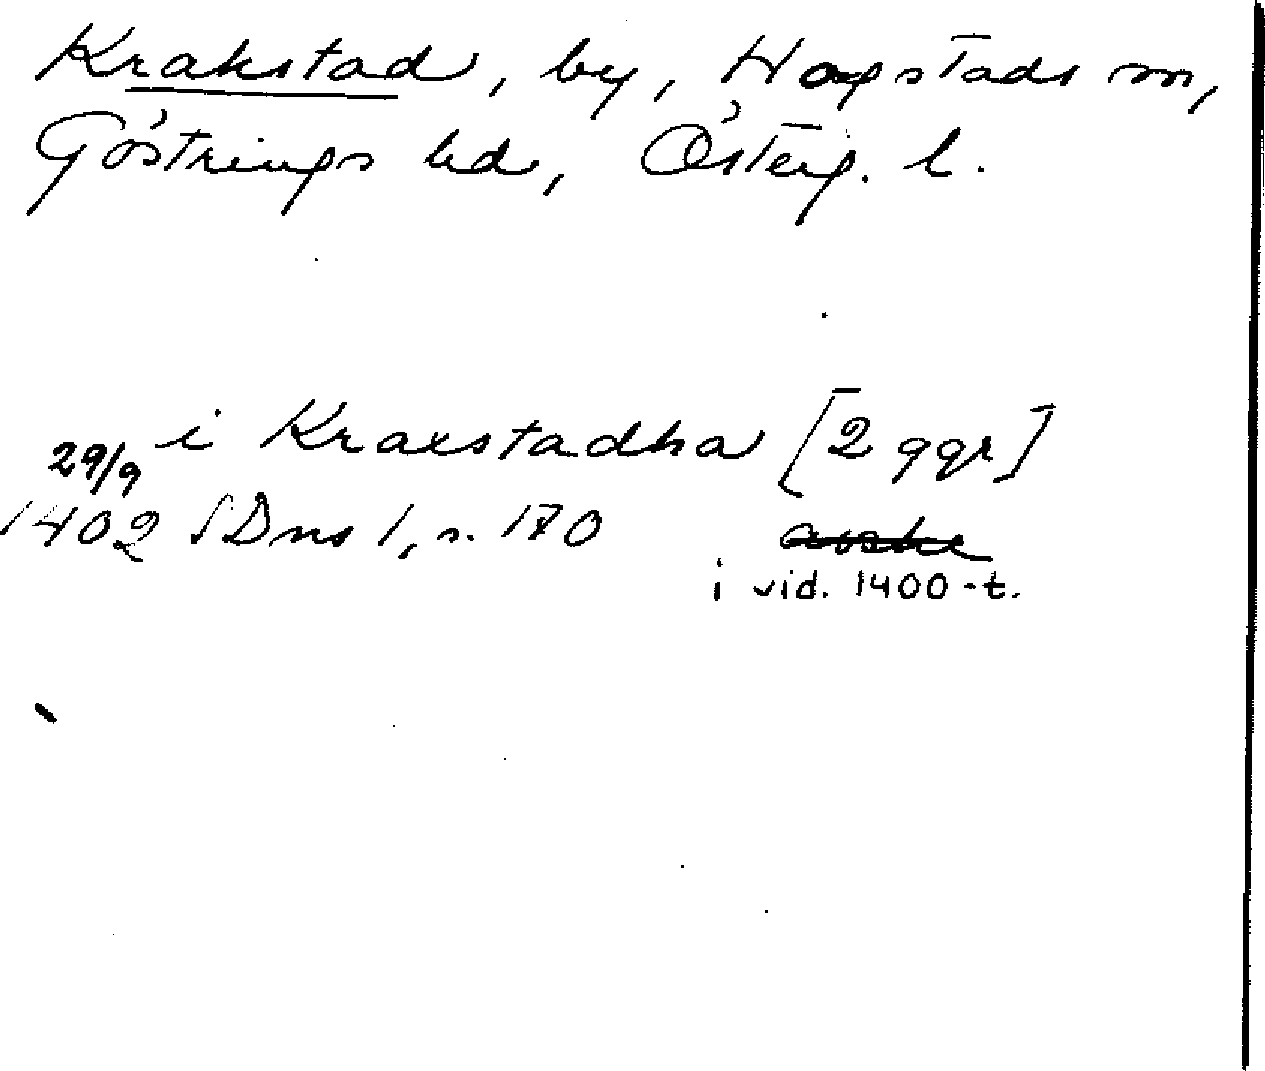 Krakstad, by, Hogstads sn,
Göstrings hd, Österg. l.
29/9 i Kraxstadha [2 ggr]
1402 SDns 1, s. 170
i vid. 1400-t.